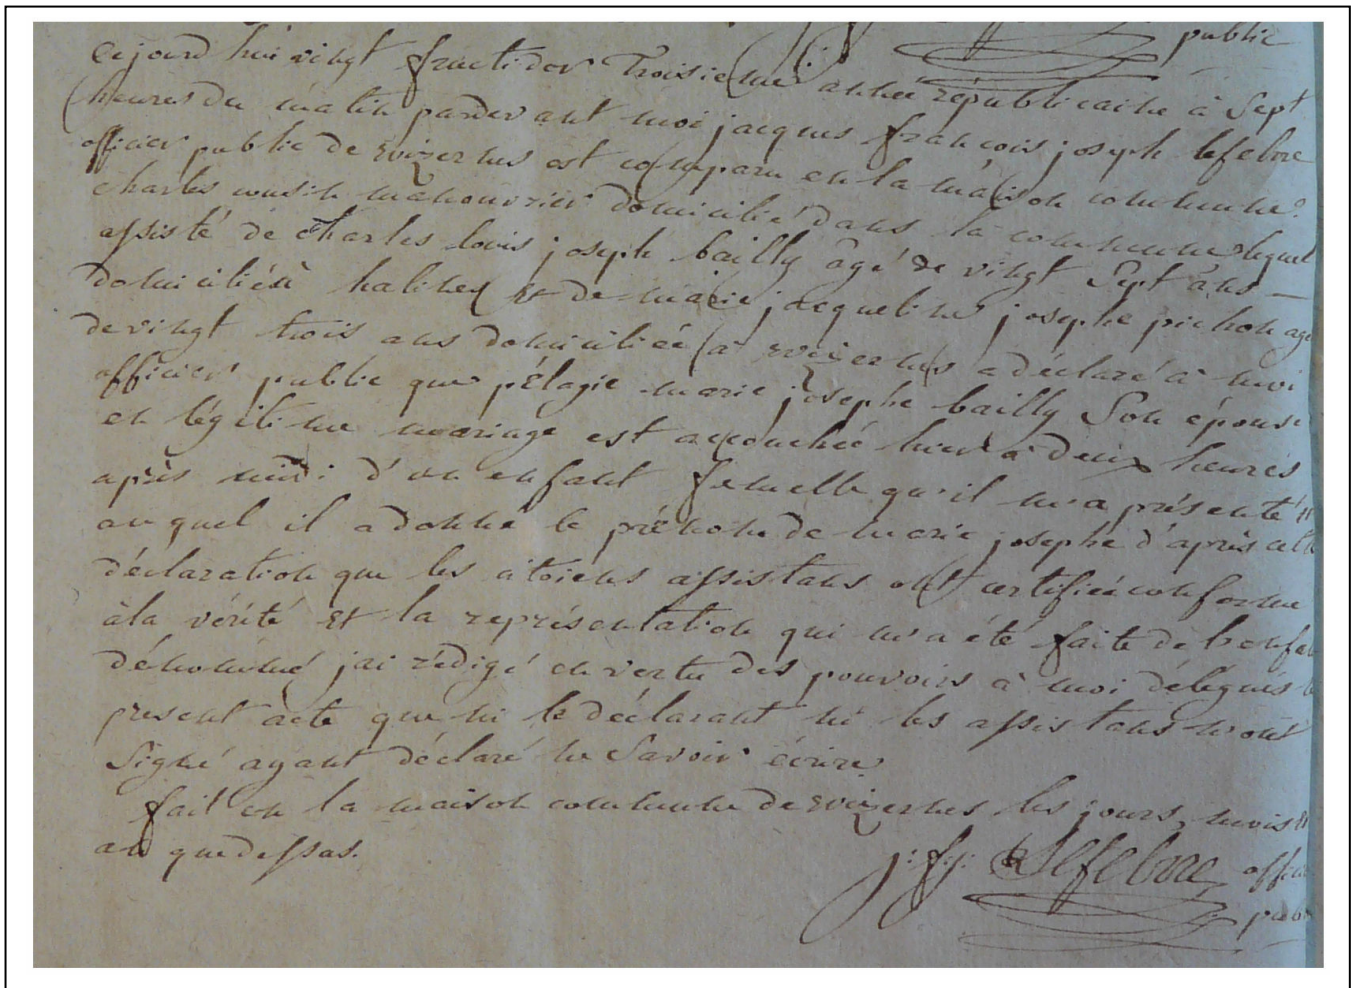 public
cejourd hui vingt fructidor Troisieme année républicaine à Sept
heures du matin pardevant moi jacques francois joseph lefebvre
officier public de wizernes est comparu en la maison commune
charles cousin manouvrier domicilié dans la commune lequel
assisté de charles louis joseph bailly âgé de vingt Sept ans
domicilié à halines et de marie jacqueline josephe pichon agé
de vingt trois ans domiciliée à wizernes a déclaré à moi
officier public que pélagie marie josephe bailly Son épouse
en légitime mariage est accouchée hier à deux heures
après midi d'un enfant femelle qu'il m'a présenté et
auquel il a donné le prénom de marie josephe d'après cette
déclaration que les citoiens assistans ont certifiée conforme
à la vérité et la représentation qui m'a été faite de l'enfan
dénommé jai rédigé en vertu des pouvoirs à moi délégués le
present acte que ni le déclarant ni les assistans n'ont
Signé ayant déclaré ne Savoir écrire
fait en la maison commune de wizernes les jours, mois et
an que dessas.
j. f. j. Lefebvre officier
public